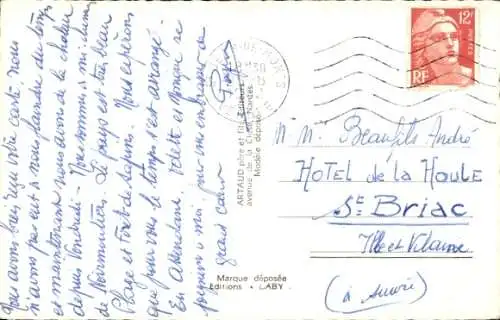 Nous avons bien reçu votre carte, nous
n'avons pas eu à nous plaindre du temps
et maintenant nous avons de la chaleur
depuis Vendredi. Nous sommes
de Noirmoutier. Le pays est très beau
Plage et Forêt de Sapins. Nous espérons
que pour vous le temps s'est arrangé.
En attendant Odette et se
toujours à moi pour vous embrasser de
grand cœur
ARTAUD père et fils, éditeurs
avenue de la Nantes
Modèle déposé
Marque déposée
Editions "GABY"
12F
POSTES
RF
M. M. Beaufils André
HOTEL de la HOULE
St BRIAC
Ille et Vilaine
(à suivre)